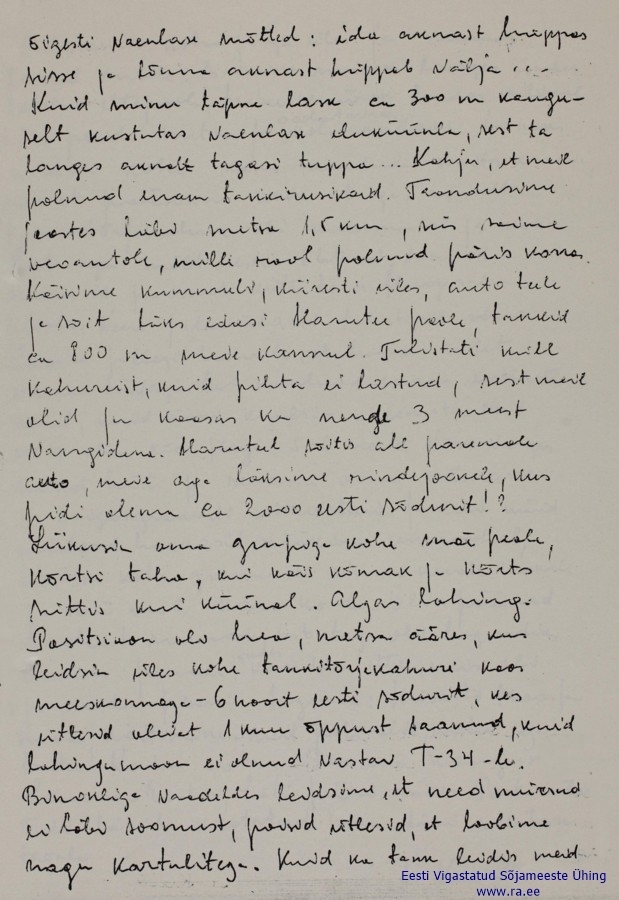 õigesti vaenlase mõtted: ida aknast hüppas
sisse ja lõuna aknast hüppab välja ...
Kuid minu täpne lask ca 300 m kaugu-
selt kustutas vaenlase eluküünla, sest ta
langes aknalt tagasi tuppa... Kahju, et meil
polnud enam tankirusikaid. Taandusime
joostes läbi metsa 1,5 km, siis saime
veoautole, millel rool polnud päris korras.
Käisime kummuli, kiiresti üles, auto teele
ja sõit läks edasi Harutee poole, tankid
ca 800 m meie kannul. Tulistati küll
kahureist, kuid pihta ei lastud, sest meil
olid ju kaasas ka nende 3 meest
vangidena. Haruteel sõitis all paremale
auto, meie aga läksime rindejoonele, kus
pidi olema ca 2000 eesti sõdurit!?
Liikusin oma grupiga kohe mäe peale,
kõrtsi taha, kui käis kõmak ja kõrts
süttis kui küünal. Algas lahing.
Positsioon oli hea, metsa ääres, kus
leidsin üles kohe tankitõrjekahuri koos
meeskonnaga - 6 noort eesti sõdurit, kes
ütlesid olevat 1 kuu õppust saanud, kuid
lahingumoon ei olnud vastav T-34-le.
Binokliga vaadeldes leidsime, et need mürsud
ei läbi soomust, poisid ütlesid, et loobime
nagu kartulitega. Kuid ka tank leidis meid
Eesti Vigastatud Sõjameeste Ühing
www.ra.ee